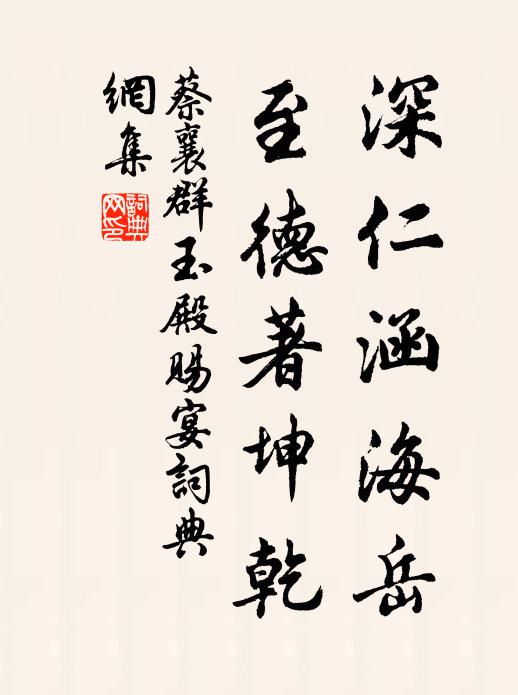 深仁涵海岳
至德著坤乾
蔡襄群玉殿賜宴詞典
網集
詞典
网印